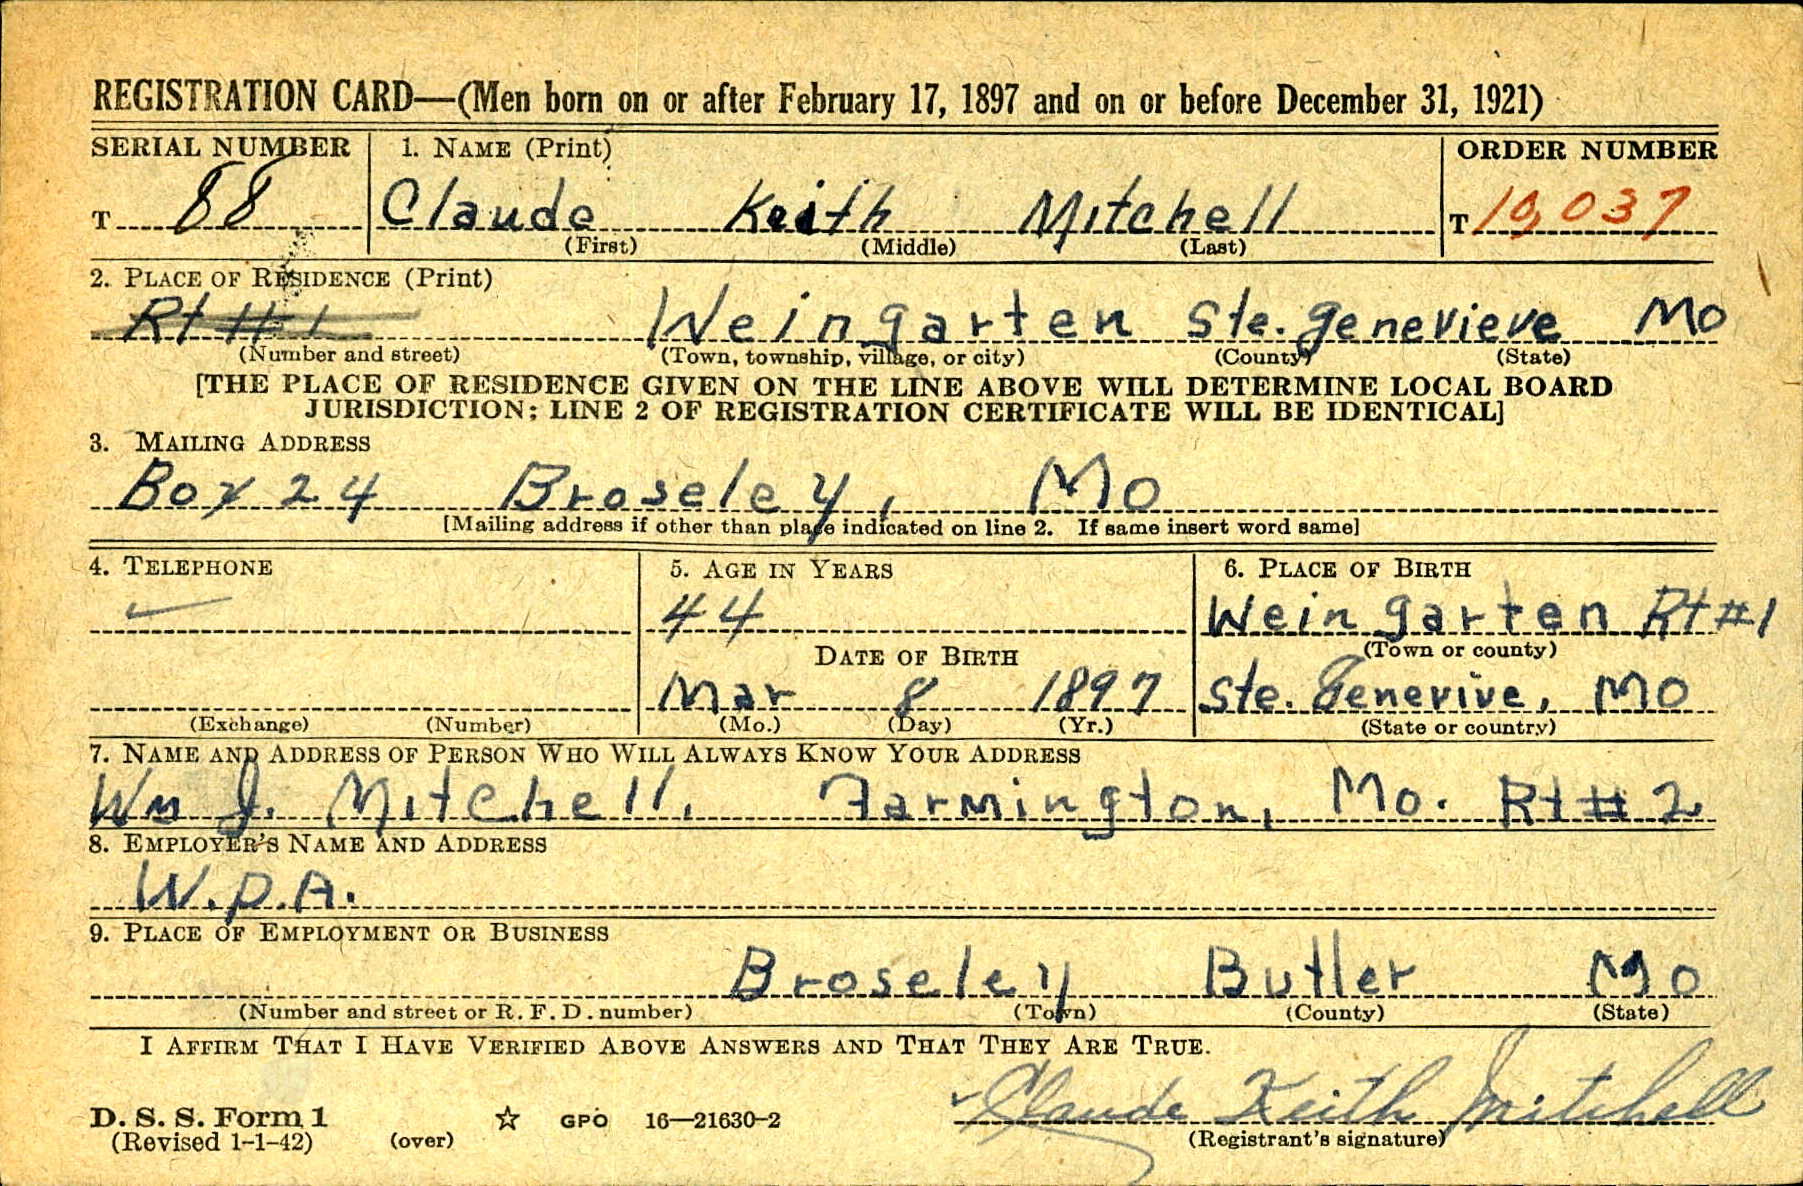 REGISTRATION CARD—(Men born on or after February 17, 1897 and on or before December 31, 1921)
SERIAL NUMBER 1. NAME (Print) ORDER NUMBER
T 88 Claude Keith Mitchell T 10,037
(First) (Middle) (Last)
2. PLACE OF RESIDENCE (Print)
Rt #1 Weingarten Ste. Genevieve Mo
(Number and street) (Town, township, village, or city) (County) (State)
[THE PLACE OF RESIDENCE GIVEN ON THE LINE ABOVE WILL DETERMINE LOCAL BOARD
JURISDICTION; LINE 2 OF REGISTRATION CERTIFICATE WILL BE IDENTICAL]
3. MAILING ADDRESS
Box 24 Broseley, Mo
[Mailing address if other than place indicated on line 2. If same insert word same]
4. TELEPHONE 5. AGE IN YEARS 6. PLACE OF BIRTH
44 Weingarten Rt #1
DATE OF BIRTH (Town or county)
Mar 8 1897 Ste. Genevive, Mo
(Exchange) (Number) (Mo.) (Day) (Yr.) (State or country)
7. NAME AND ADDRESS OF PERSON WHO WILL ALWAYS KNOW YOUR ADDRESS
Wm J. Mitchell, Farmington, Mo. Rt #2
8. EMPLOYER'S NAME AND ADDRESS
W.P.A.
9. PLACE OF EMPLOYMENT OR BUSINESS
Broseley Butler Mo
(Number and street or R. F. D. number) (Town) (County) (State)
I AFFIRM THAT I HAVE VERIFIED ABOVE ANSWERS AND THAT THEY ARE TRUE.
Claude Keith Mitchell
D. S. S. Form 1 ☆ GPO 16—21630-2
(Revised 1-1-42) (over) (Registrant's signature)